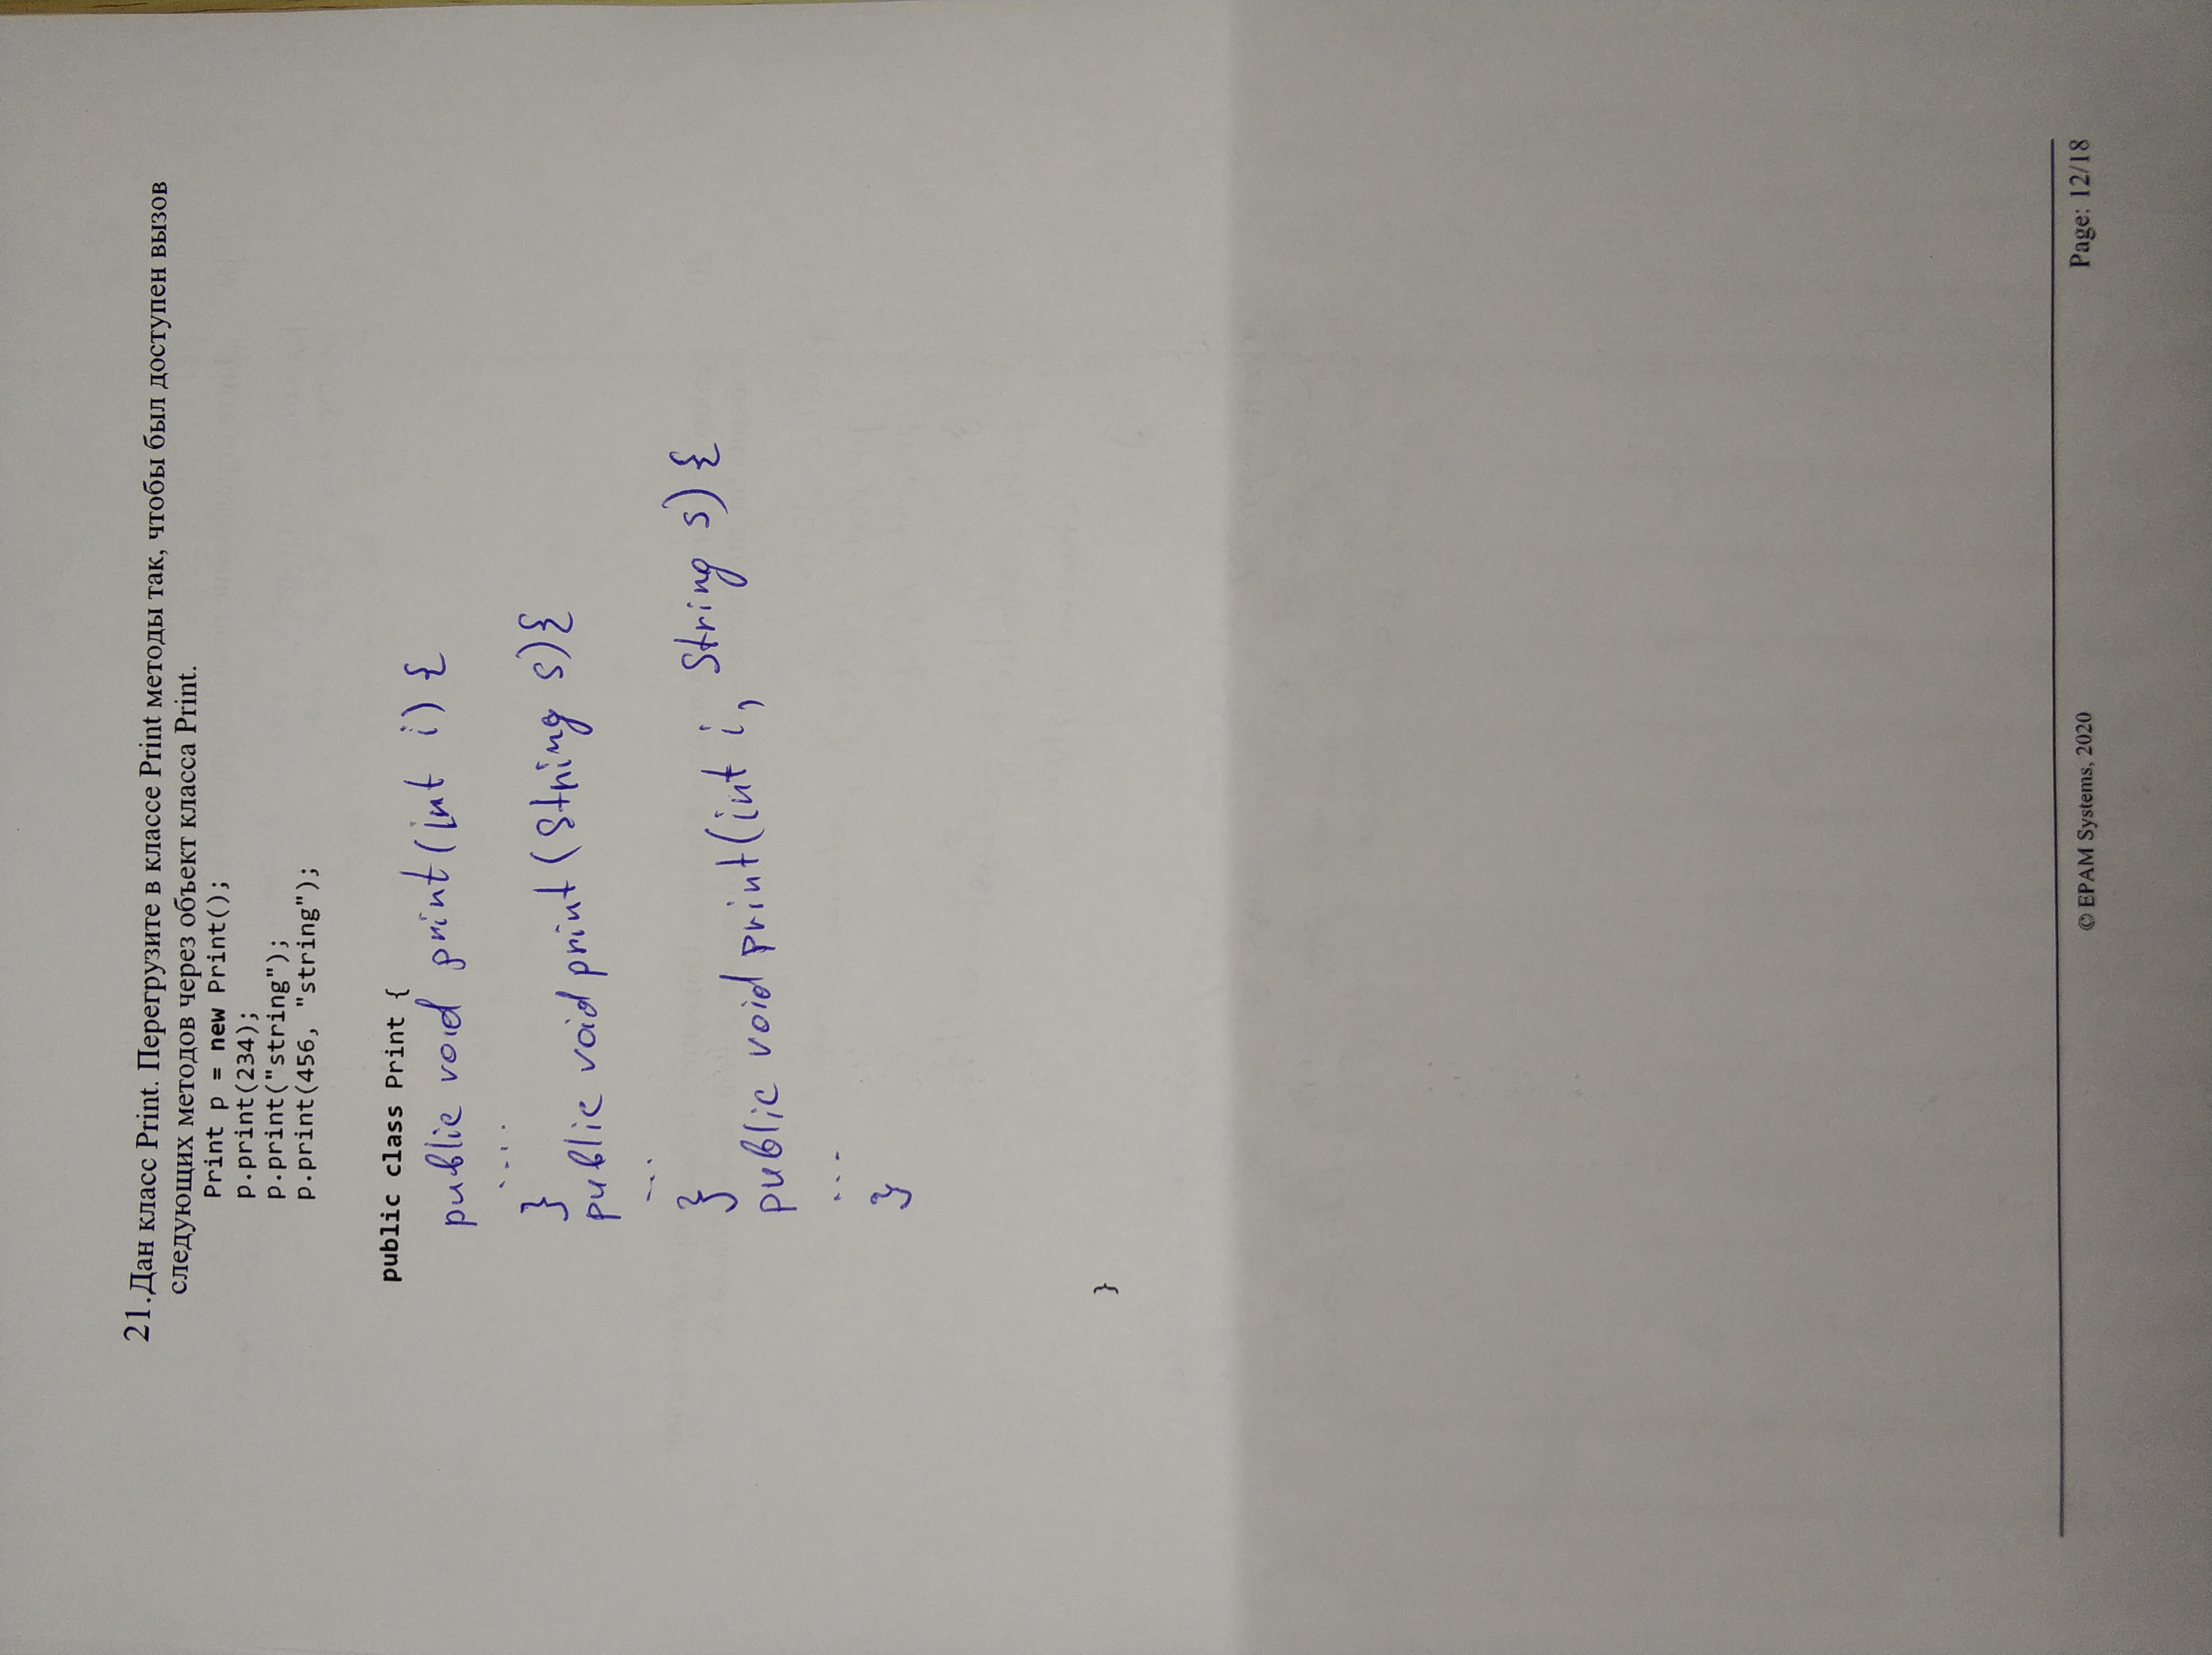 21. Дан класс Print. Перегрузите в классе Print методы так, чтобы был доступен вызов
следующих методов через объект класса Print.
Print p = new Print();
p.print(234);
p.print("string");
p.print(456, "string");
public class Print {
public void print(int i) {
....
}
public void print (String s){
...
}
public void print(int i, String s) {
...
}
}
© EPAM Systems, 2020
Page: 12/18